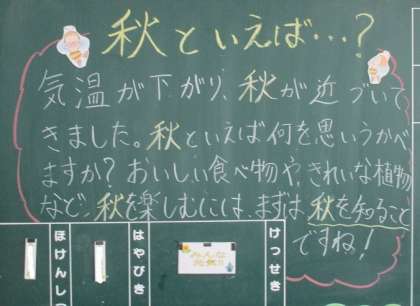 秋といえば…?
気温が下がり、秋が近づいて
きました。秋といえば何を思いうかべ
ますか? おいしい食べ物や、きれいな植物
など、秋を楽しむには、まずは秋を知ること
ですね!
ほけんしつ
はやびき
みんな
元気!!
けっせき